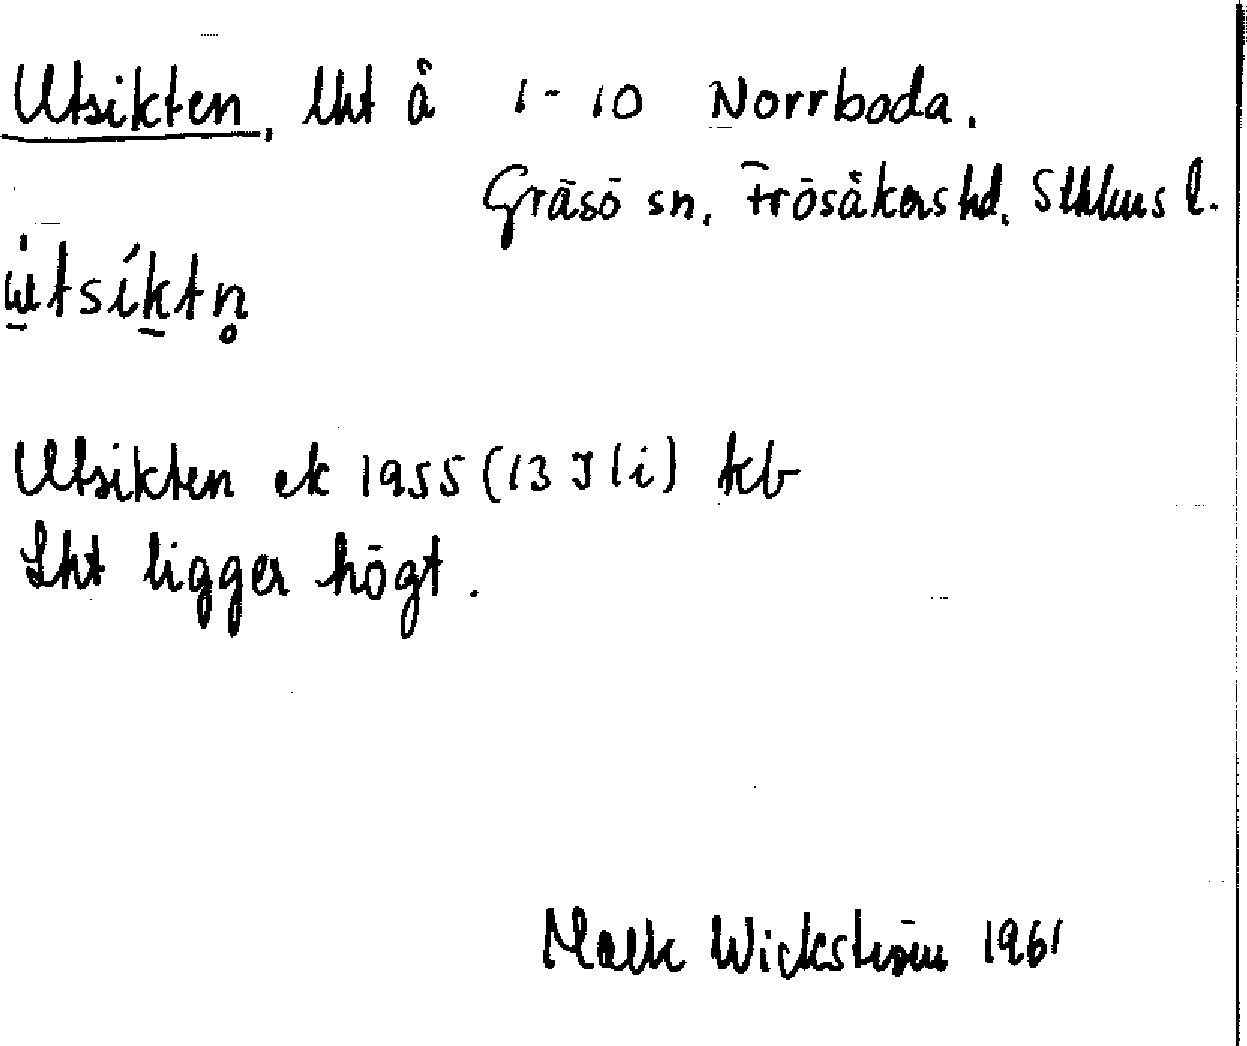 Utsikten, lht å 1-10 Norrboda.
Gräsö sn, Frösåkers hd, Sthlms l.
ùtsíktn̥
Utsikten ek 1955 (13 I 1 i) kb
Lht ligger högt.
Wickström 1961